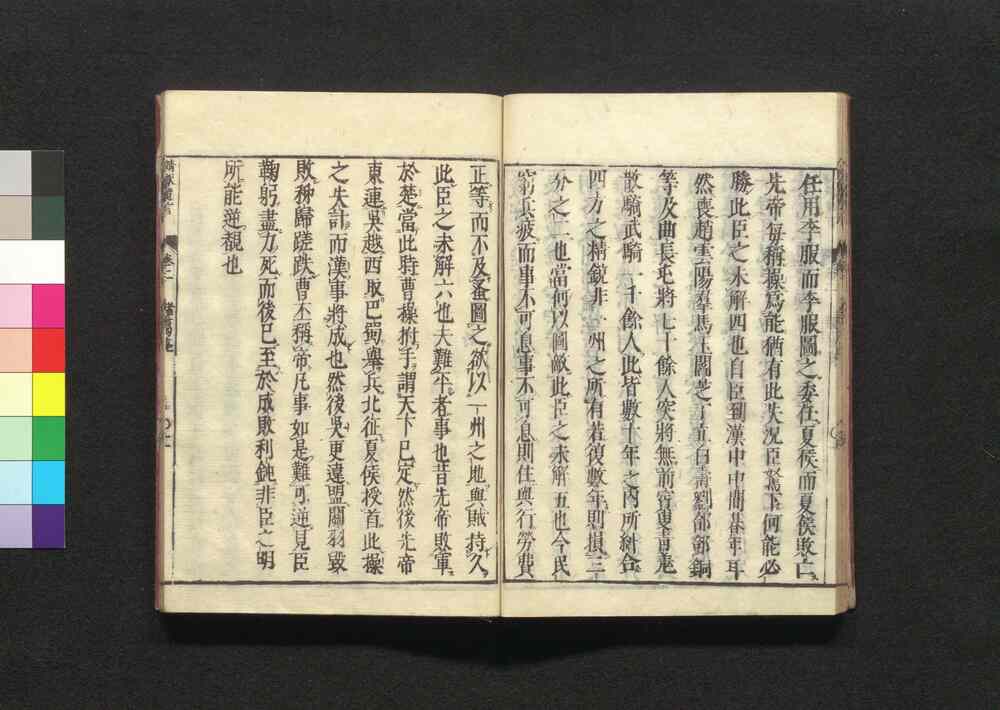 任用李服而李服圖之委任夏侯而夏侯敗亡
先帝每稱操爲能猶有此失况臣駑下何能必
勝此臣之未解四也自臣到漢中中間朞年耳
然喪趙雲陽羣馬玉閻芝丁立白壽劉郃鄧銅
等及曲長屯將七十餘人突將無前賨叟青羌
散騎武騎一千餘人此皆數十年之內所糾合
四方之精銳非一州之所有若復數年則損三
分之二也當何以圖敵此臣之未解五也今民
窮兵疲而事不可息事不可息則住與行勞費
正等而不及蚤圖之欲以一州之地與賊持久
此臣之未解六也夫難平者事也昔先帝敗軍
於楚當此時曹操拊手謂天下已定然後先帝
東連吳越西取巴蜀舉兵北征夏侯授首此操
之失計而漢事將成也然後吳更違盟關羽毀
敗秭歸蹉跌曹丕稱帝凡事如是難可逆見臣
鞠躬盡力死而後已至於成敗利鈍非臣之明
所能逆覩也
卷二